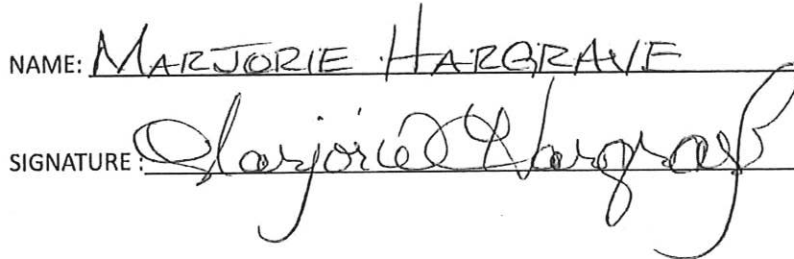 NAME: MARJORIE HARGRAVE
SIGNATURE: Marjorie Hargrave